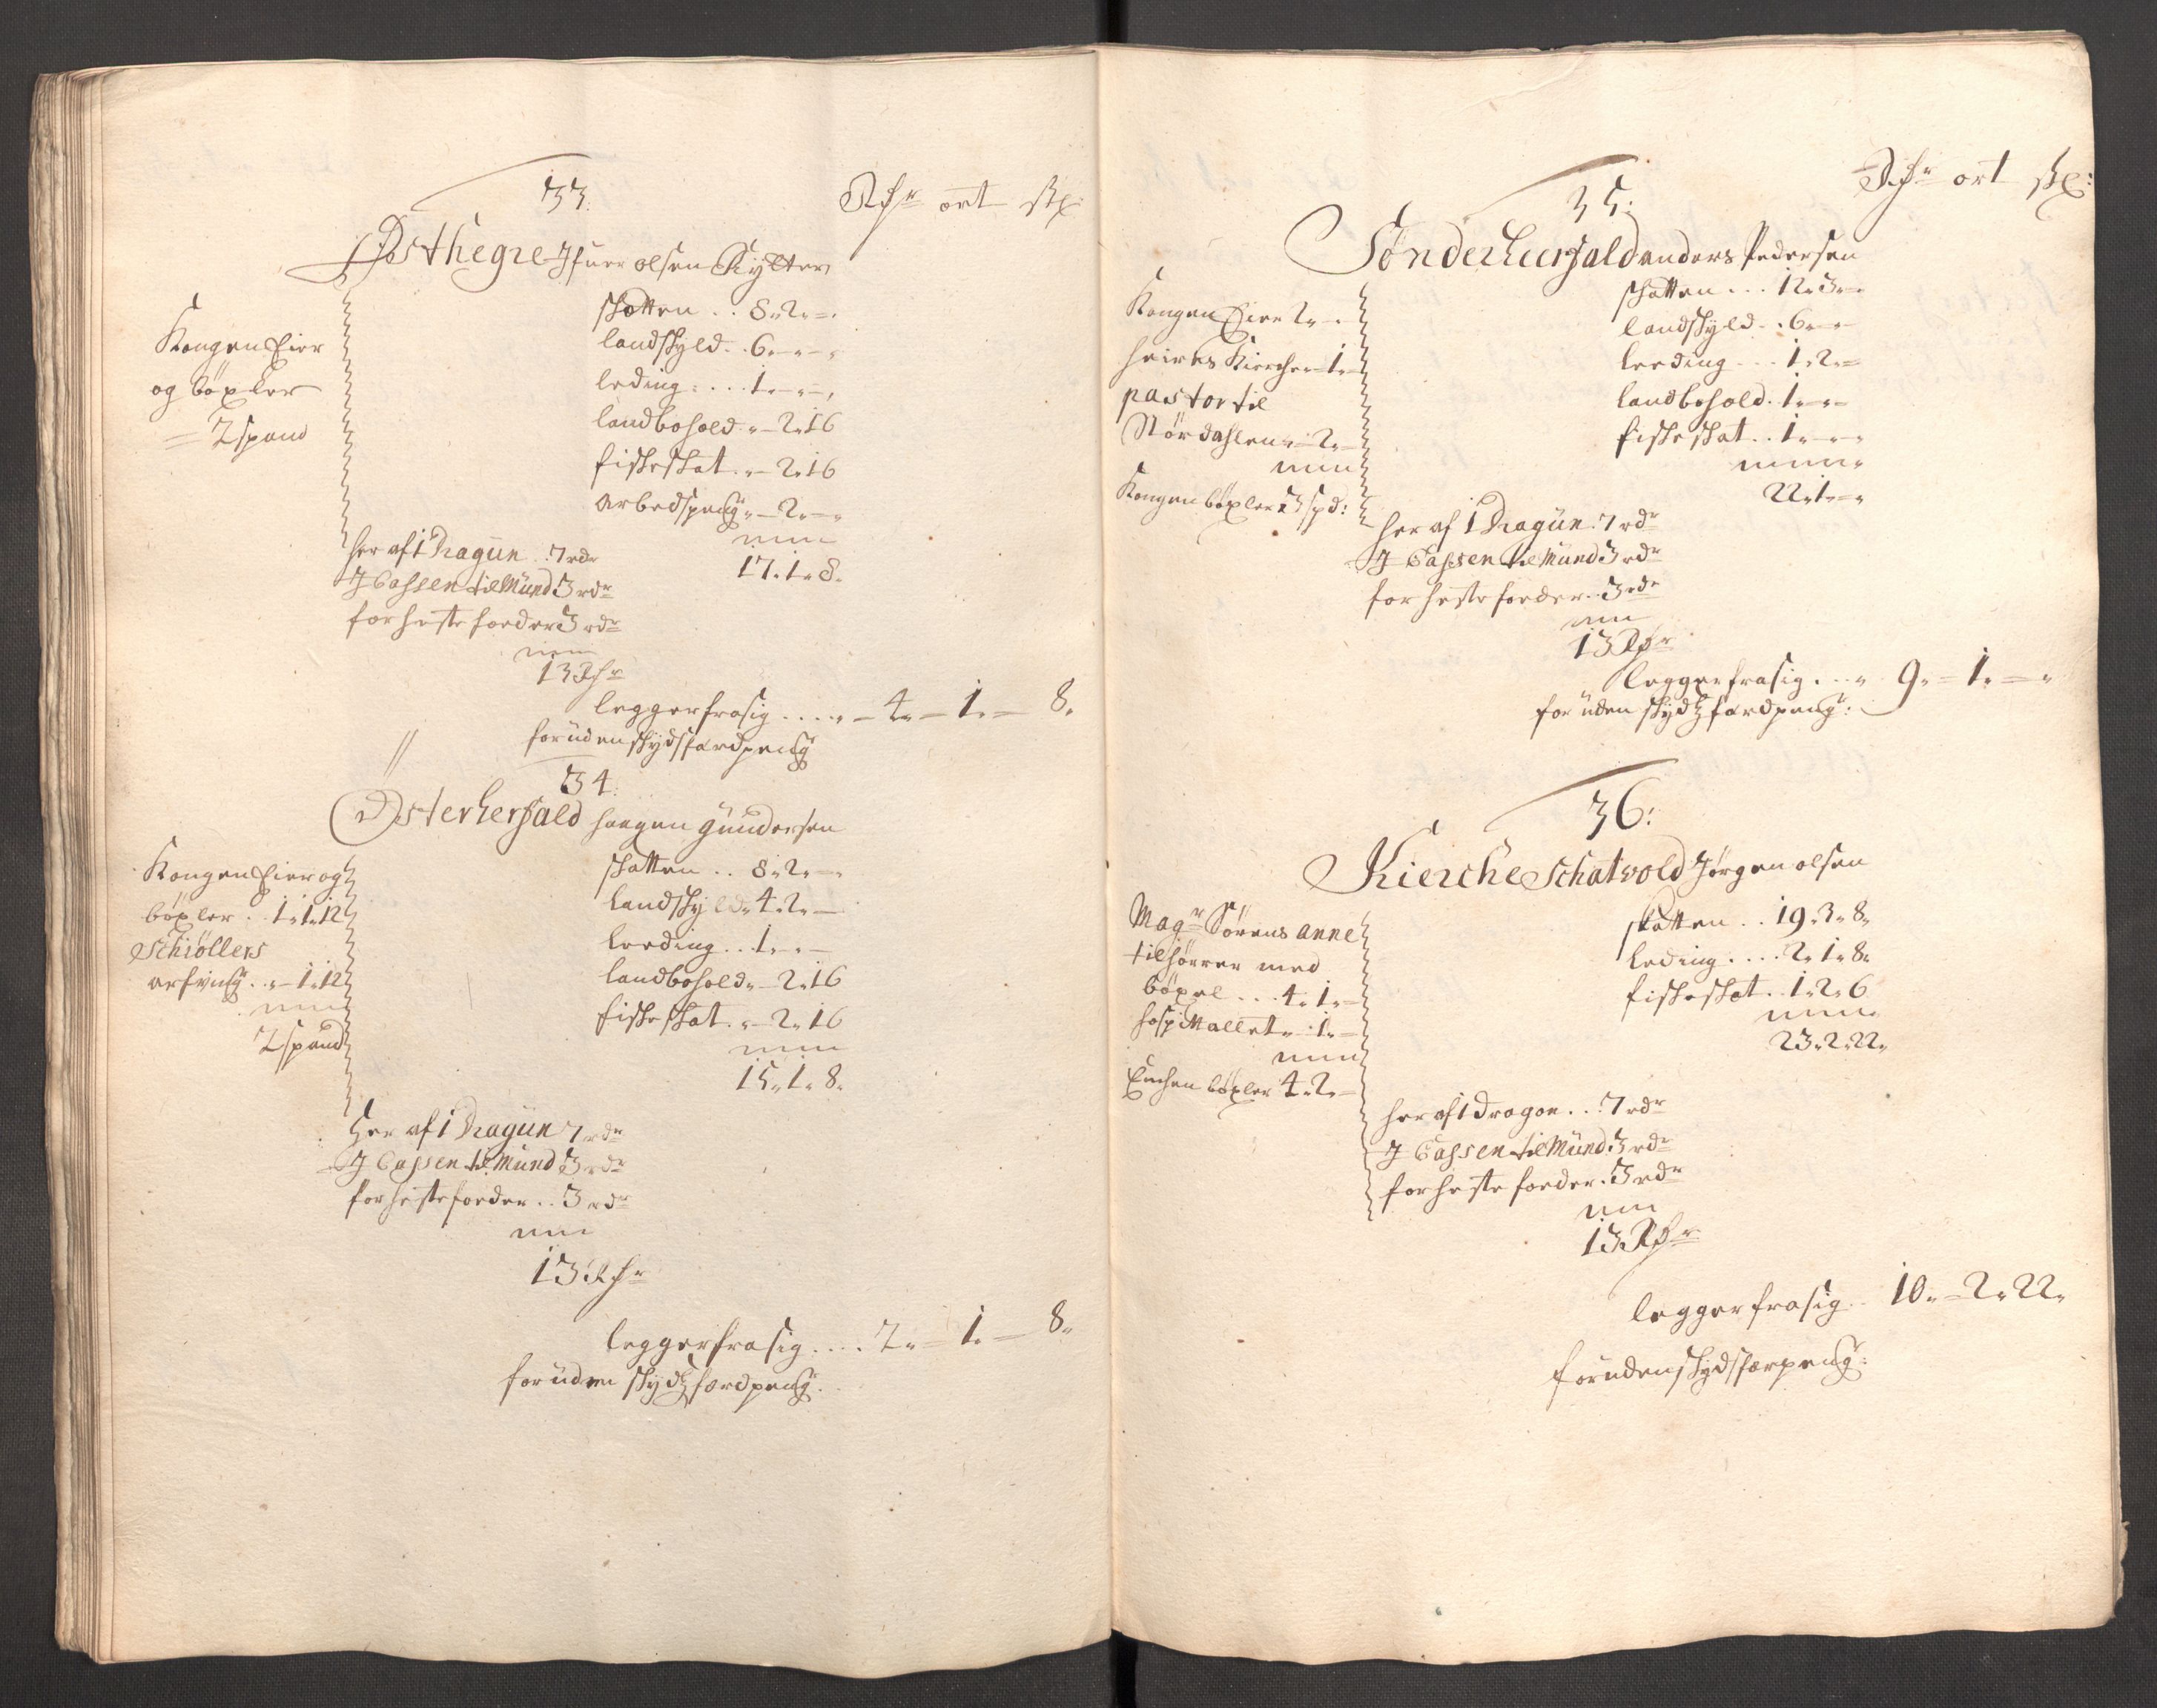 33.
Rdr ort sk:
Østhegre Ifuer olsen Rytter
Kongen Eier
og böxler
= 2 spand
skatten .. 8„2„-„
landskyld .. 6„-„-„
leding .... 1„-„-„
landbohold „-2„16
fiskeskat .„-2„16
arbedspeng „-2„-„
17„1„8„
her af 1 Dragun .7 rdr
J Cassen til Mund 3 rdr
for heste foeder 3 rdr
13 Rdr
legger fra sig ..... 4„-1„-8„
foruden skydsfærdpeng
34.
Østerhersald haagen gundersen
Kongen Eier og
böxler . 1„1„12
Schiøllers
arfving ..„-1„12
2 spand
skatten .. 8„2„-„
landskyld„ 4„2„-
leeding .. 1„-„-
landbohold„-2„16
fiskeskat .„-2„16
15„1„8„
Her af 1 Dragun 7 rdr
J Cassen til Mund 3 rdr
for heste foeder .. 3 rdr
13 Rdr
legger fra sig .... 2„-1„-8„
foruden skydsfærdpeng.
Rdr ort sk:
35:
Sønderheersald anders Pedersen
Kongen Eier 2„-„
heires Kierche„-1„-
pastor til
Størdahlen„-2„-
Kongen böxler 3 spd:
skatten ... 12„3„-„
landskyld .. 6„-„-
leeding ... 1„2„-
landbohold . 1„-„-
fiskeskat .. 1„-„-„
22„1„-„
her af 1 Dragun .7 rdr
J Cassen til Mund 3 rdr
for heste foeder .. 3 rdr
13 Rdr
legger fra sig ...„ 9„-1„-„
foruden skydsfærdpeng:
36:
Kierche Schatvold Jørgen olsen
Magr Sørens anne
tilhører med
böxel ... 4„1„-
hospittallet„-1„-
Enchen böxler 4„2„-
skatten .. 19„3„8„
leding .... 2„1„8„
fiskeskat .. 1„2„6
23„2„22„
her af 1 dragon ... 7 rdr
J Cassen til Mund 3 rdr
for heste foeder . 3 rdr
13 Rdr
legger fra sig .. 10„-2„22„
foruden skydsfærpeng: